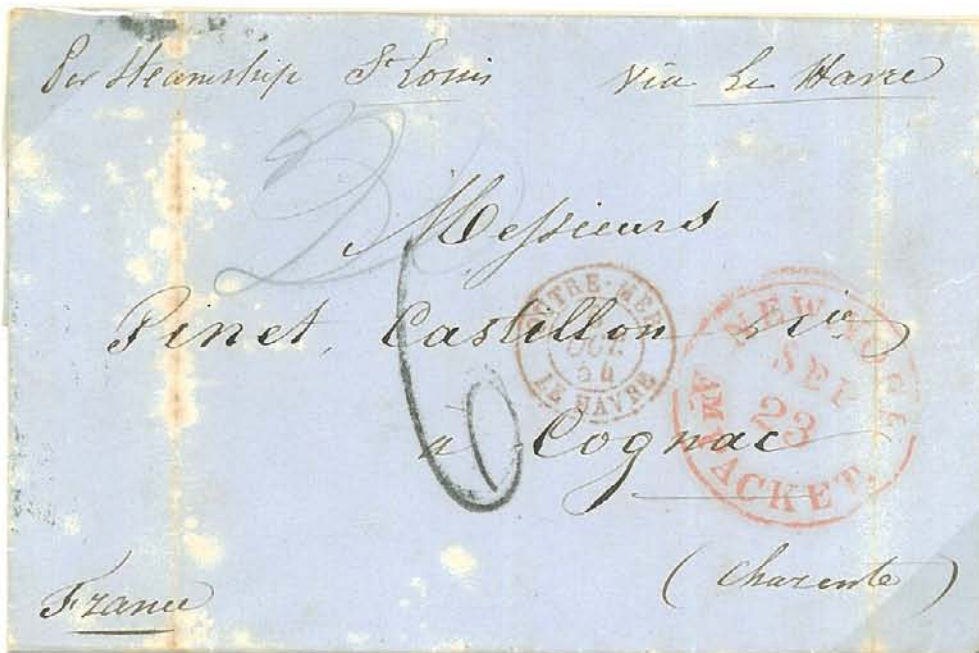 Per Steamship St Louis via Le Havre
20
Messieurs
Pinet, Castillon & Cie
à Cognac
(Charente)
France
6
OUTRE-MER
OCT.
54
LE HAVRE
NEW YORK
SEP
23
AM. PACKET.